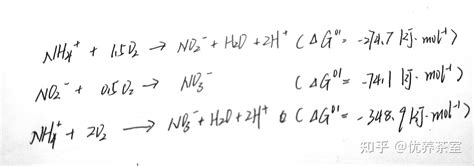 NH₄⁺ + 1.5O₂ → NO₂⁻ + H₂O + 2H⁺ (ΔG⁰¹ = -274.7 kJ·mol⁻¹)
NO₂⁻ + 0.5O₂ → NO₃⁻ (ΔG⁰¹ = -74.1 kJ·mol⁻¹)
NH₄⁺ + 2O₂ → NO₃⁻ + H₂O + 2H⁺ (ΔG⁰¹ = -348.9 kJ·mol⁻¹)
知乎 @优养茶室